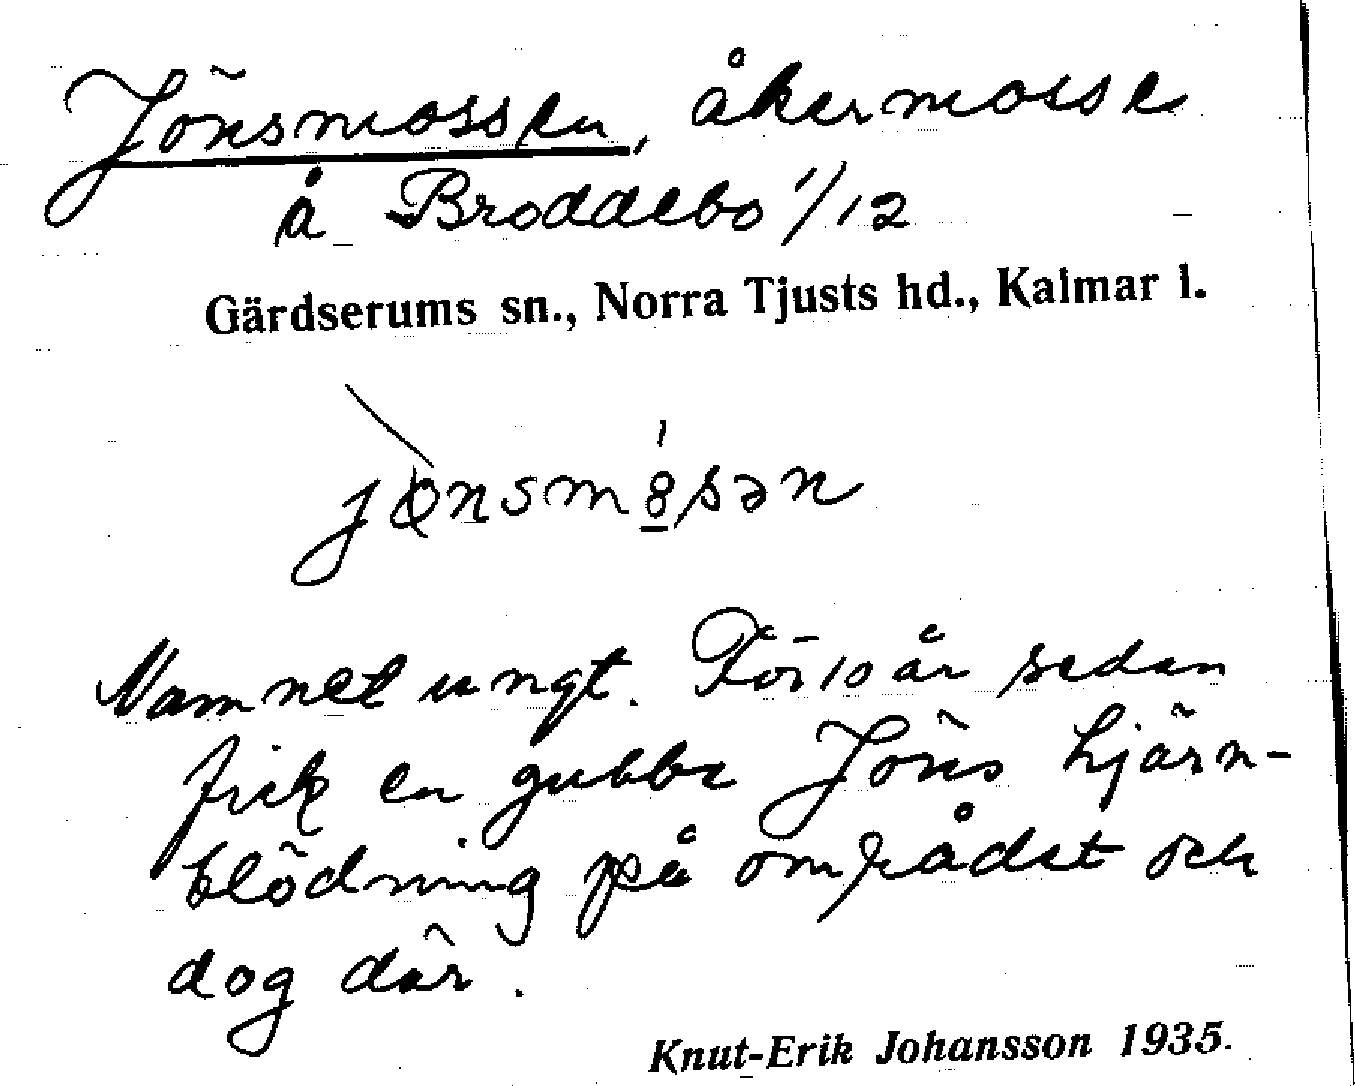 Jönsmossen, åkermosse
å Broddebo 1/12
Gärdserums sn., Norra Tjusts hd., Kalmar l.
Namnet ungt. För 10 år sedan
fick en gubbe Jöns hjärn-
blödning på området och
dog där.
Knut-Erik Johansson 1935.